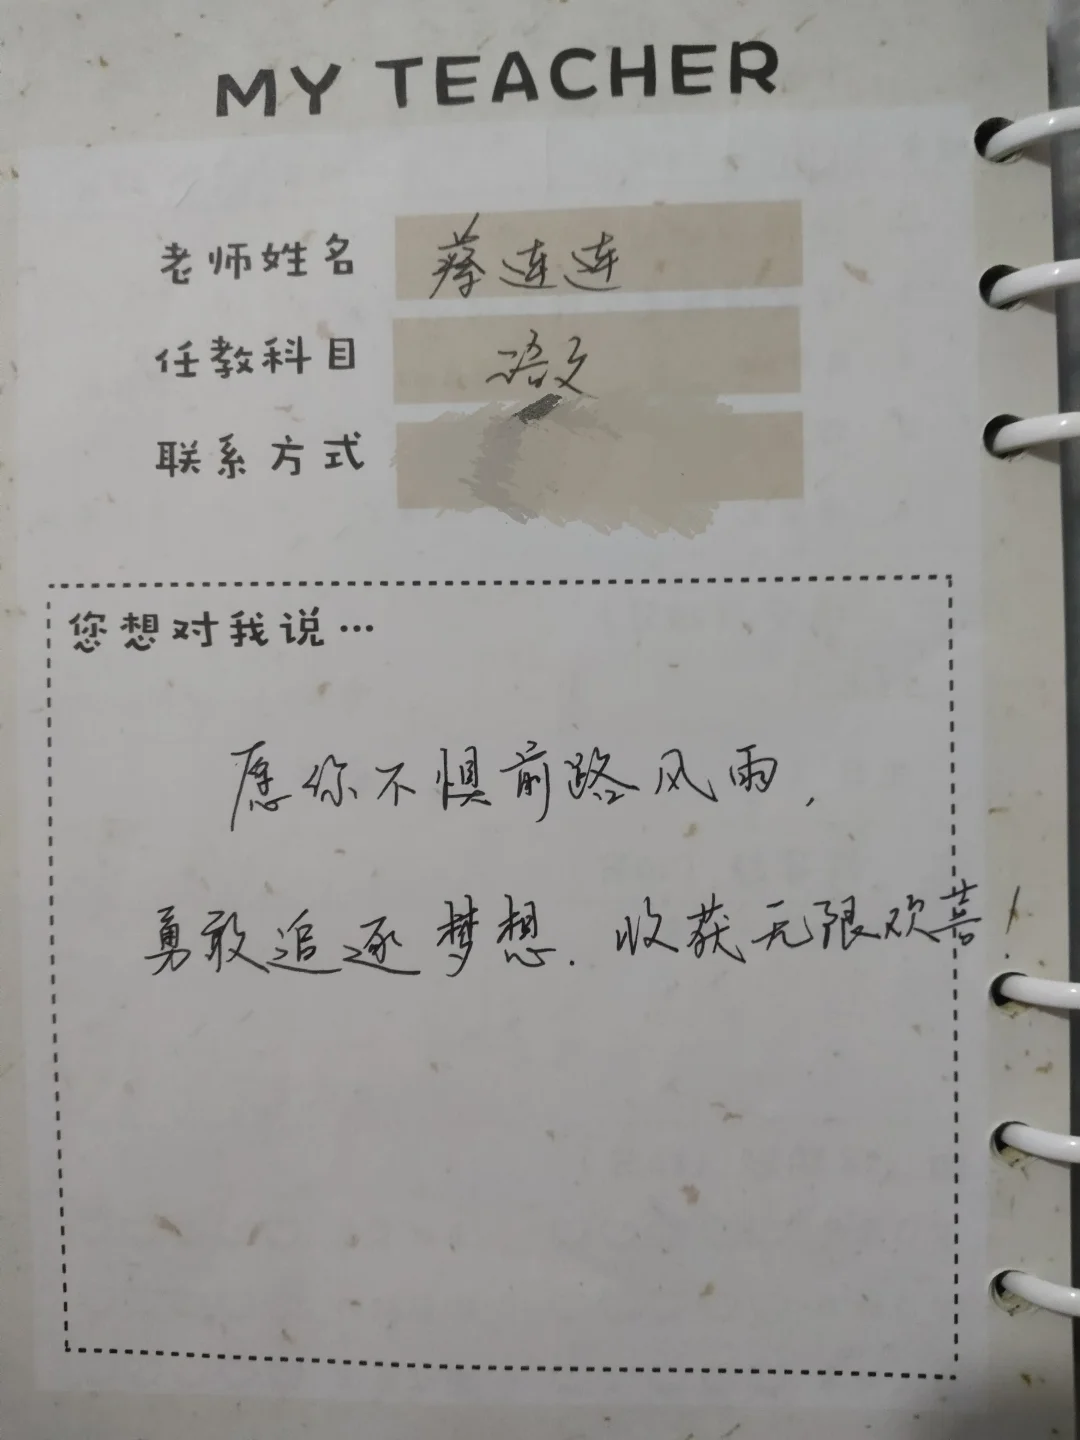 MY TEACHER
老师姓名 蔡连连
任教科目 语文
联系方式
您想对我说…
愿你不惧前路风雨，
勇敢追逐梦想．收获无限欢喜！